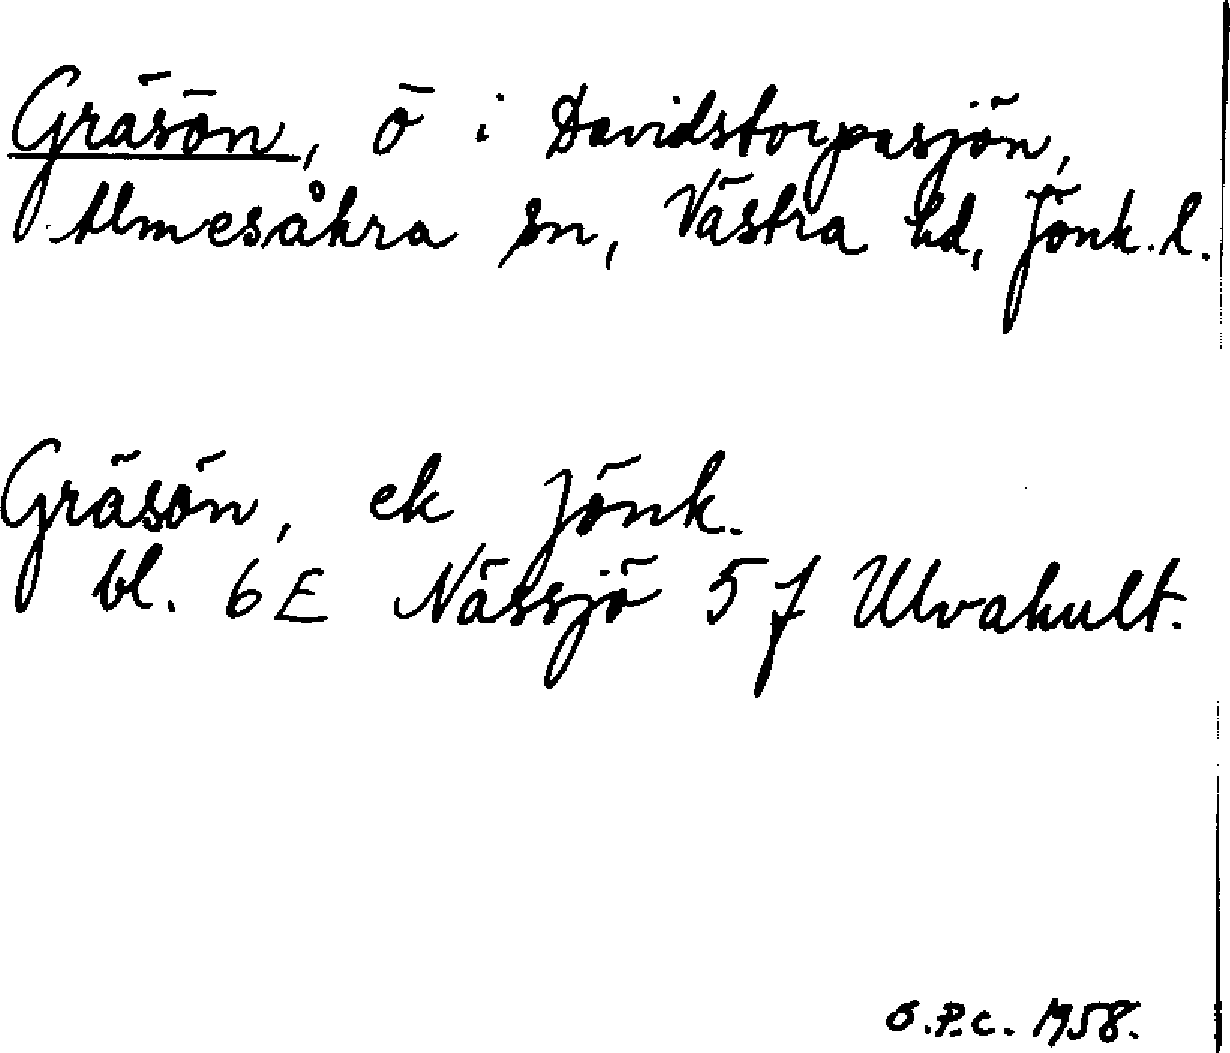 Gräsön, ö i Davidstorpasjön,
Almesåkra sn, Västra hd, Jönk. l.
Gräsön, ek Jönk.
bl. 6E Nässjö 5 J Ulvakult.
O.P.C. 1958.